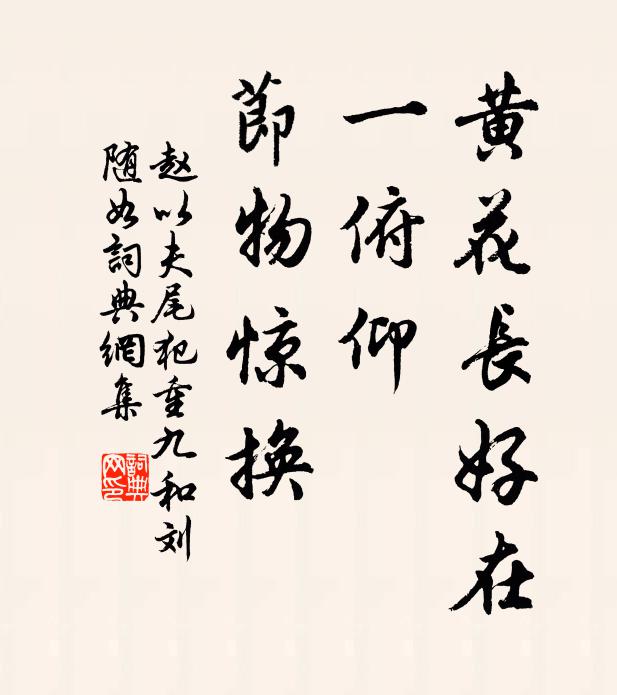 黄花長好在
一俯仰
節物惊换
赵以夫尾犯重九和刘
随如詞典網集
詞典
网印